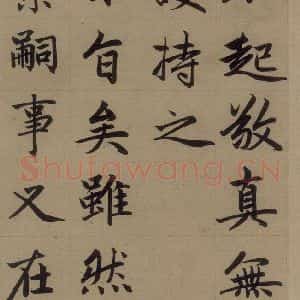 起敬真無
持之
旨矣雖然
嗣事又在
Shufawang.CN